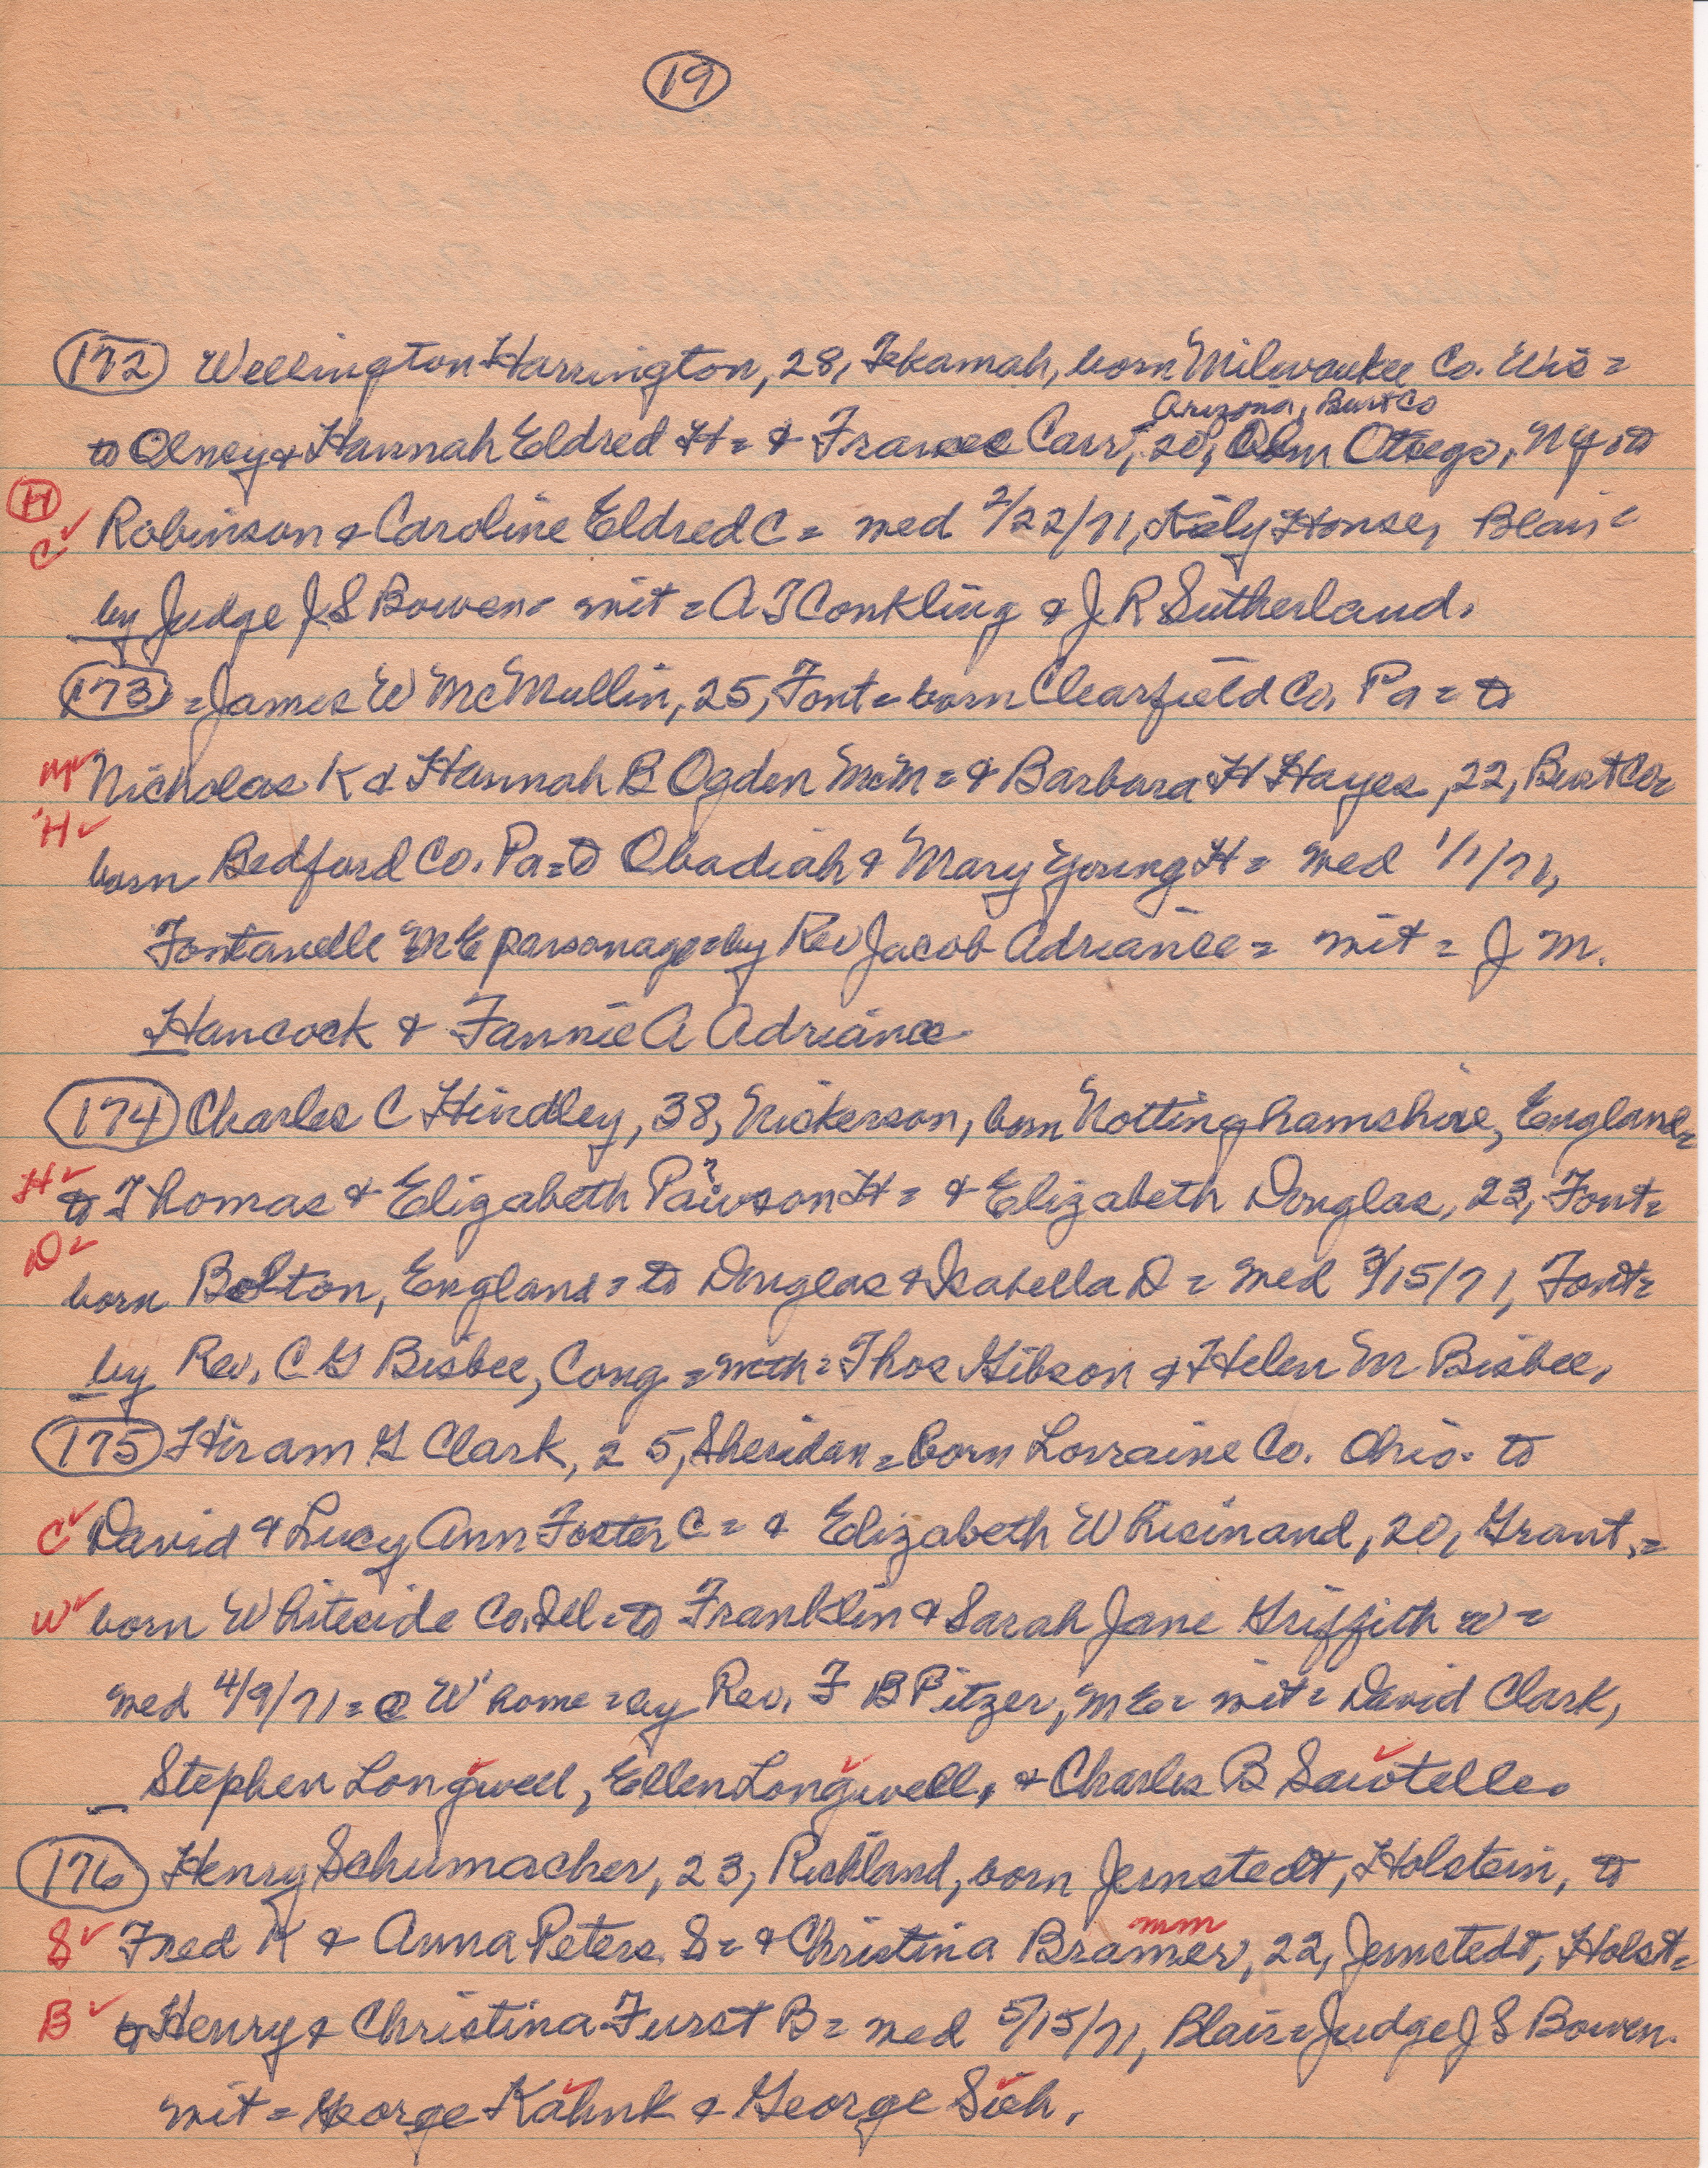 19
172 Wellington Harrington, 28, Tekamah, born Milwaukee Co. Wis =
Arizona, Burt Co
to Olney & Hannah Eldred H = & Frances Carr, 20, Otsego, NY = to
H
Robinson & Caroline Eldred C = med 2/22/71, Kiely House, Blair =
C
by Judge J S Bowen = wit = A T Conkling & J R Sutherland.
173 = James W McMullin, 25, Font = born Clearfield Co. Pa = to
Mc Nicholas K & Hannah B Ogden McM = & Barbara H Hayes, 22, Burt Co
H
born Bedford Co. Pa = to Obadiah & Mary Young H = med 1/1/71,
Fontanelle ME parsonage = by Rev Jacob Adriance = wit = J M.
Hancock & Fannie A Adriance
174 Charles C Hindley, 38, Nickerson, born Nottinghamshire, England =
?
H to Thomas & Elizabeth Pawson H = & Elizabeth Douglas, 23, Font =
D
born Bolton, England = to Douglas & Isabella D = med 3/15/71, Font =
by Rev. C G Bisbee, Cong = Thos Gibson & Helen M Bisbee.
175 Hiram G Clark, 25, Sheridan = born Lorraine Co. Ohio = to
C David & Lucy Ann Foster C = & Elizabeth Whisinand, 20, Grant, =
W born Whiteside Co. Ill = to Franklin & Sarah Jane Griffith W =
med 4/9/71 = @ W home = by Rev. F B Pitzer, ME = wit = David Clark,
Stephen Longwell, Ellen Longwell, & Charles B Sawtelle.
176 Henry Schumacher, 23, Richland, born Jernstedt, Holstein, to
mm
S Fred K & Anna Peters S = & Christina Bramer, 22, Jernstedt, Holst =
B to Henry & Christina Furst B = med 5/15/71, Blair = Judge J S Bowen.
wit = George Kahnk & George Sieh.